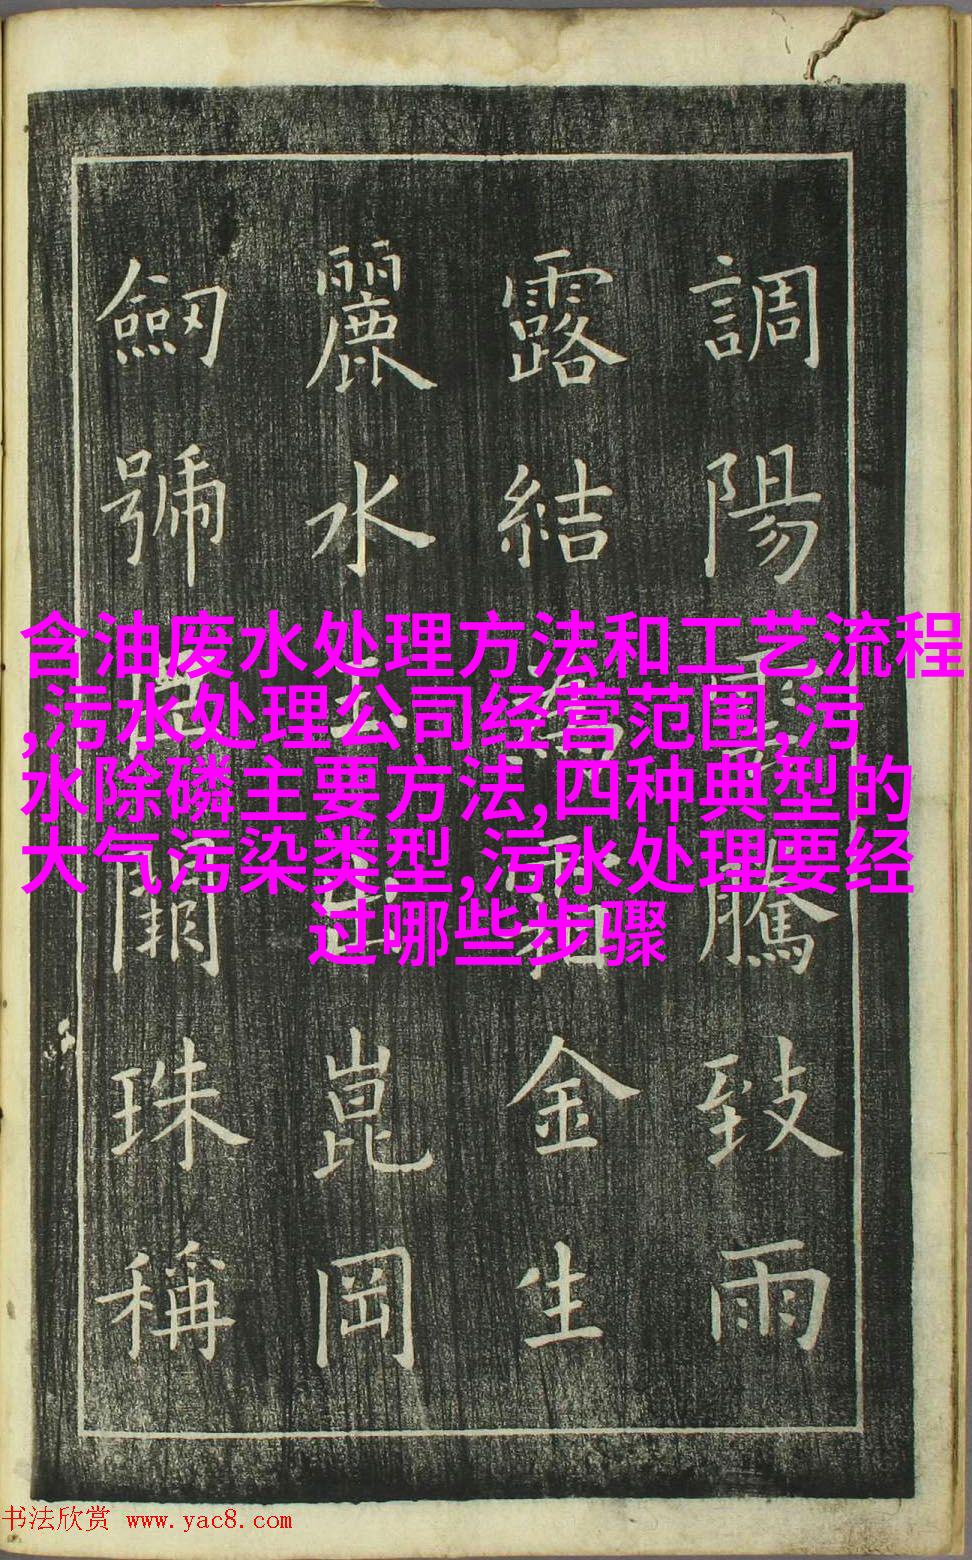 調陽雲騰致雨
露結為霜金生
麗水玉出崑岡
劒號巨闕珠稱
含油废水处理方法和工艺流程
,污水处理公司经营范围,污
水除磷主要方法,四种典型的
大气污染类型,污水处理要经
过哪些步骤
书法欣赏 www.yac8.com